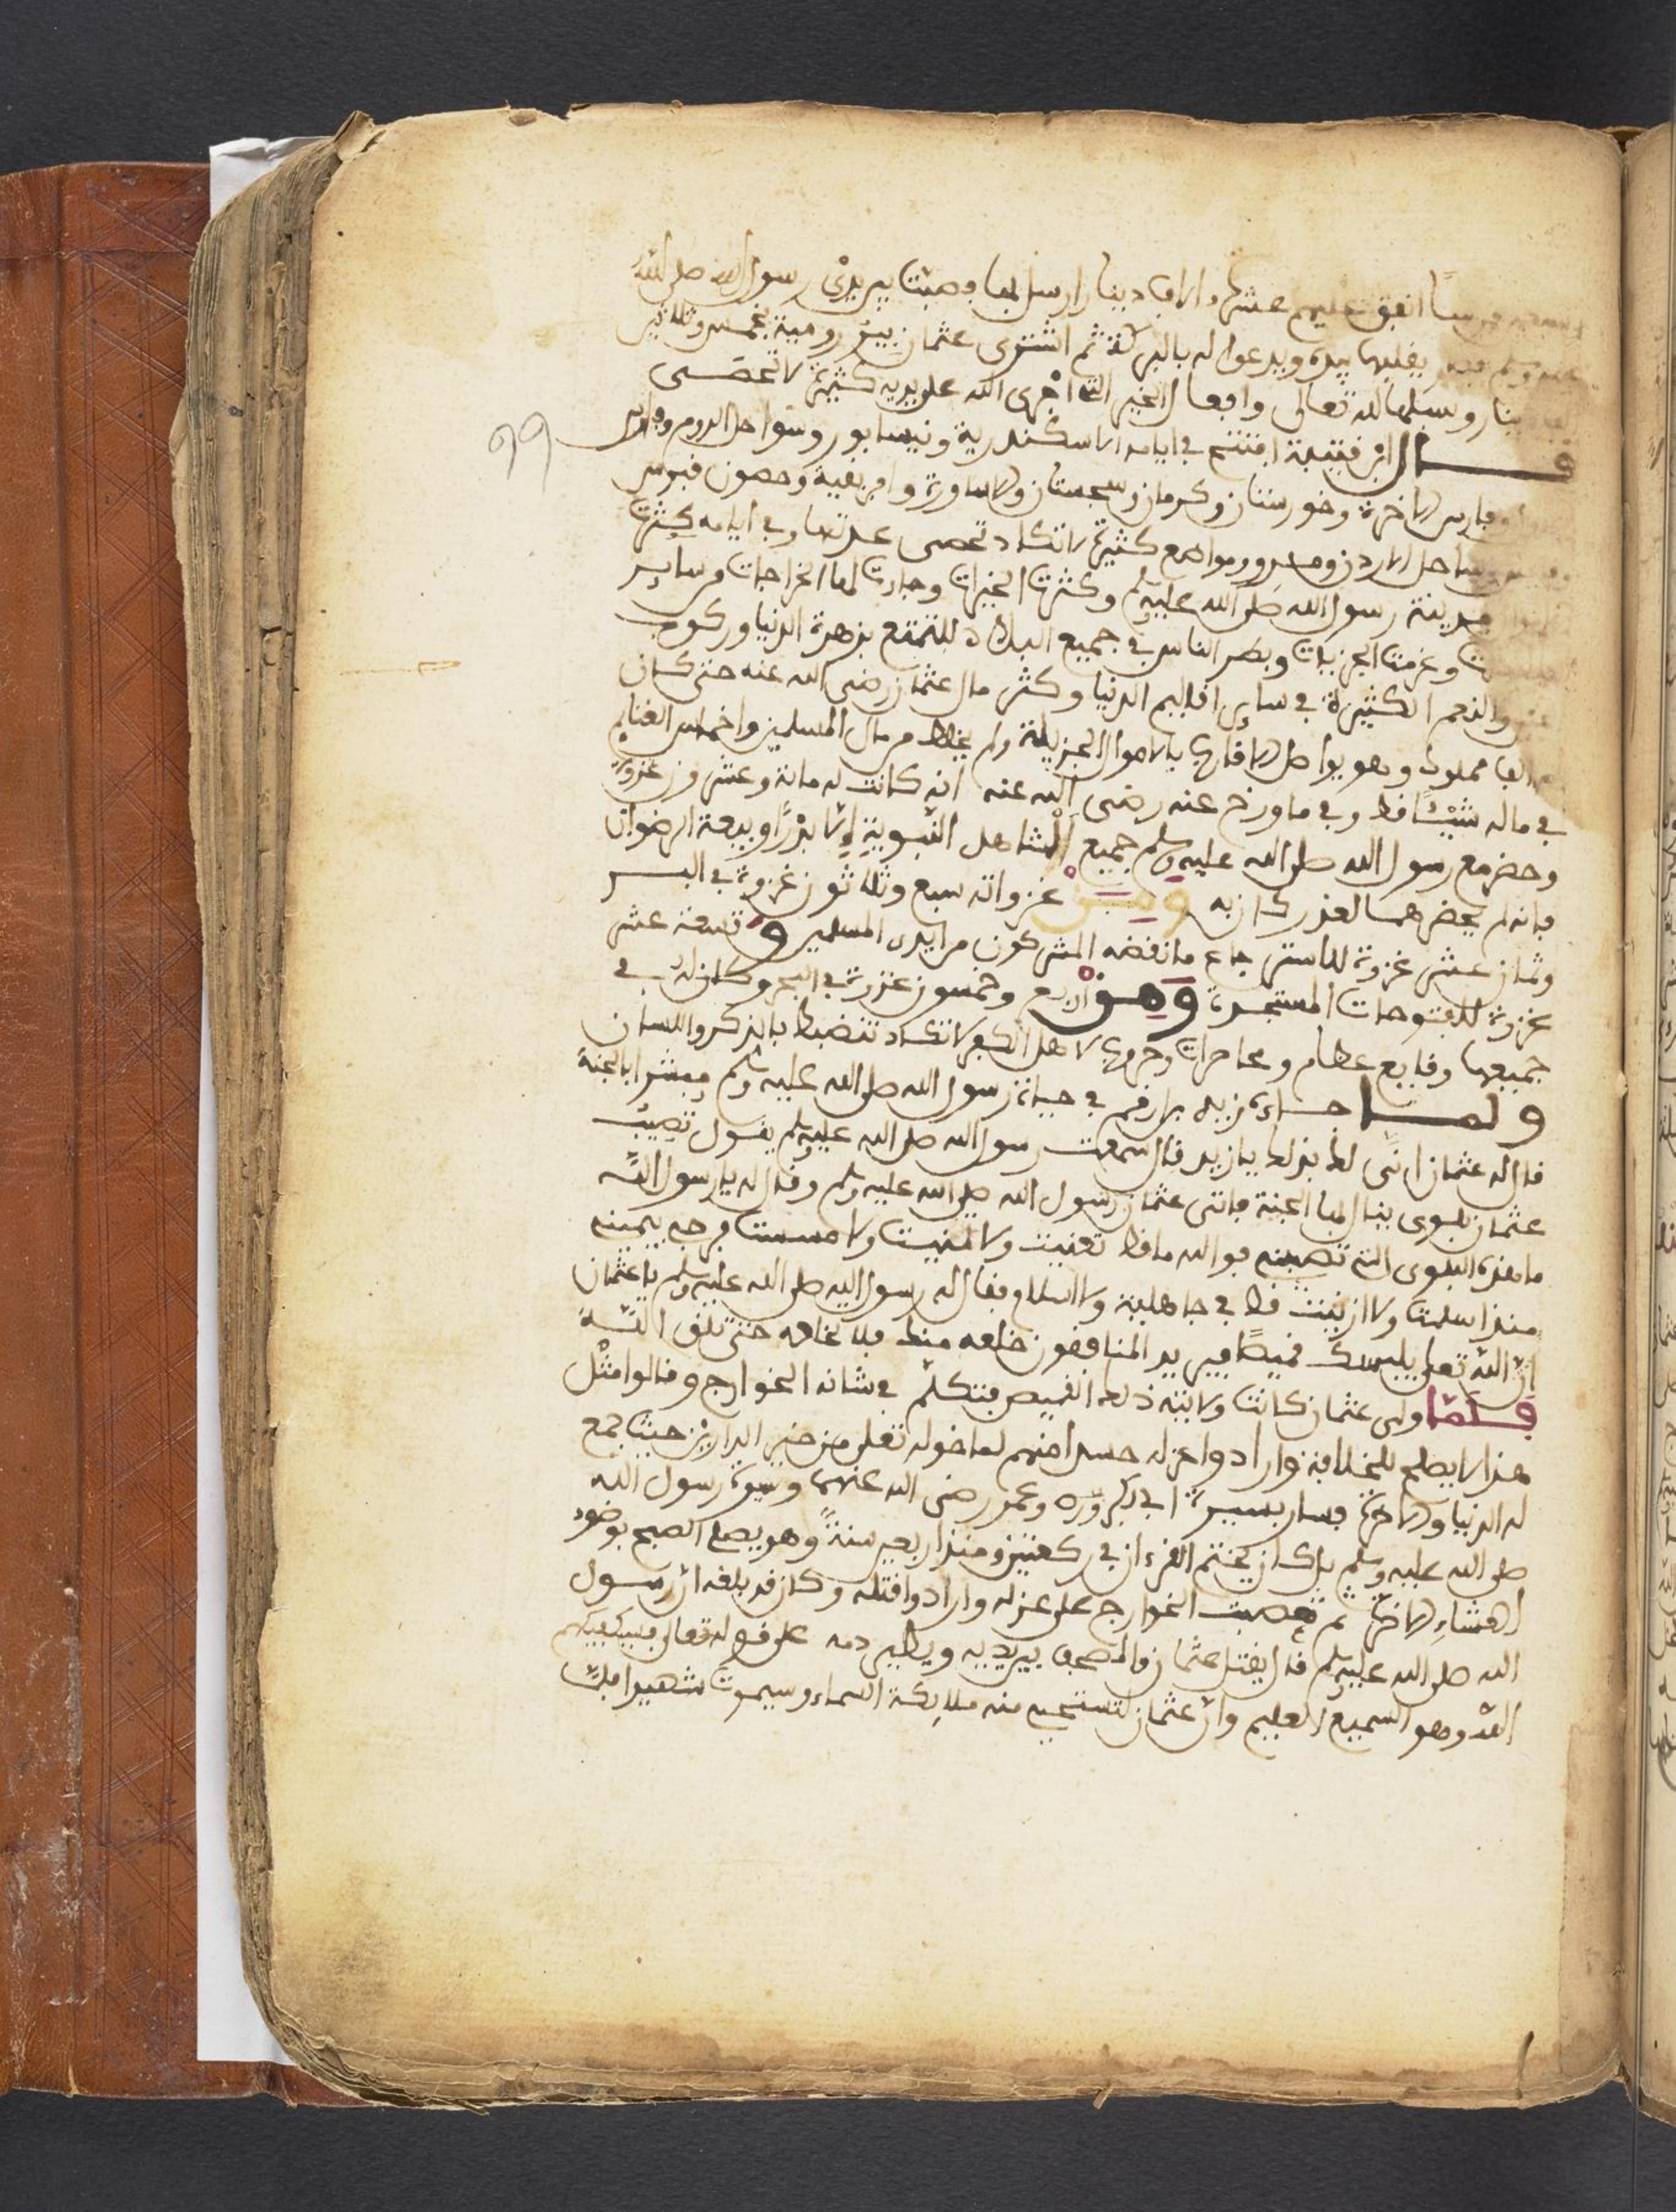 انفق عليهم عشرة الاف دينار ارسل بها وصبت بين يدي رسول الله صلى الله
عليه وسلم يقلبها بيده ويدعوا له بالبركة ثم اشترى عثمان بير رومية بخمس وثلاثين
دينار وسبلها لله تعالى وافعال الخير التي اجرى الله على يديه كثيرة لا تحصى
قال ابن قتيبة افتتح في ايامه الاسكندرية ونيسابور وسواحل الروم وفارس
فارس الاخرة وخورستان وكرمان وسجستان والاساورة وافريقية وحصون قبرس
وساحل الاردن ومرو ومواضع كثيرة لا تكاد تحصى عدتها وفي ايامه كثرت
مدينة رسول الله صلى الله عليه وسلم وكثرت الخيرات وجاءت لها الخراجات من ساير
وعرفت الجزيات وبطر الناس في جميع البلاد للتمتع بزهرة الدنيا وركوب
والنعم الكثيرة في ساير اقاليم الدنيا وكثر مال عثمان رضي الله عنه حتى كان
الف مملوك وهو يواصل الاقارب بالاموال الجزيلة ولم يخلط من مال المسلمين واخماس الغنايم
في ماله شيئا قط وفي ما ورخ عنه رضي الله عنه انه كانت له ماية وعشرون غزوة
وحضر مع رسول الله صلى الله عليه وسلم جميع المشاهد النبوية الا بدرا وبيعة الرضوان
فانه لم يحضرهما لعذر كان به غزواته سبع وثلاثون غزوة في البر
وثمان عشر غزوة للاسترجاع ما نقضه المشركون من ايدي المسلمين وتسعة عشر
غزوة للفتوحات المستجدة اربع وخمسون غزوة في البحر وكان له في
جميعها وقايع عظام ومحاصرات وحروب لاهل الكفر لا تكاد تنضبط بالذكر واللسان
ولما جاءه زيد بن ارقم في حياة رسول الله صلى الله عليه وسلم مبشرا بالجنة
قال له عثمان انى لك بذلك يا زيد قال سمعت رسول الله صلى الله عليه وسلم يقول تصيب
عثمان بلوى ينال بها الجنة فاتى عثمان رسول الله صلى الله عليه وسلم وقال له يا رسول الله
ما هذه البلوى التي تصيبني فوالله ما قط تغنيت ولا تمنيت ولا مسست فرجي بيميني
منذ اسلمت ولا زنيت قط في جاهلية ولا اسلام فقال له رسول الله صلى الله عليه وسلم يا عثمان
ان الله تعلى يلبسك قميصا فيريد المنافقون خلعه منك فلا تخلعه حتى تلقى الله
فلما ولي عثمان كانت ولايته ذلك القميص فتكلم في شانه الخوارج وقالوا مثل
هذا لا يصلح للخلافة وارادوا عزله حسدا منهم لما خوله تعلى من خير الدارين حيث جمع
له الدنيا والاخرة فسار بسيرة ابي بكر وعمر رضي الله عنهما وسيرة رسول الله
صلى الله عليه وسلم بل كان يختم القرءان في ركعتين ومنذ اربعين سنة وهو يصلي الصبح بوضوء
العشاء الاخرة ثم تعصبت الخوارج على عزله وارادوا قتله وكان قد بلغه ان رسول
الله صلى الله عليه وسلم قال يقتل عثمان والمصحف بين يديه ويطير دمه على قوله تعالى فسيكفيكهم
الله وهو السميع العليم وان عثمان لتستحيي منه ملايكة السماء وسيموت شهيدا